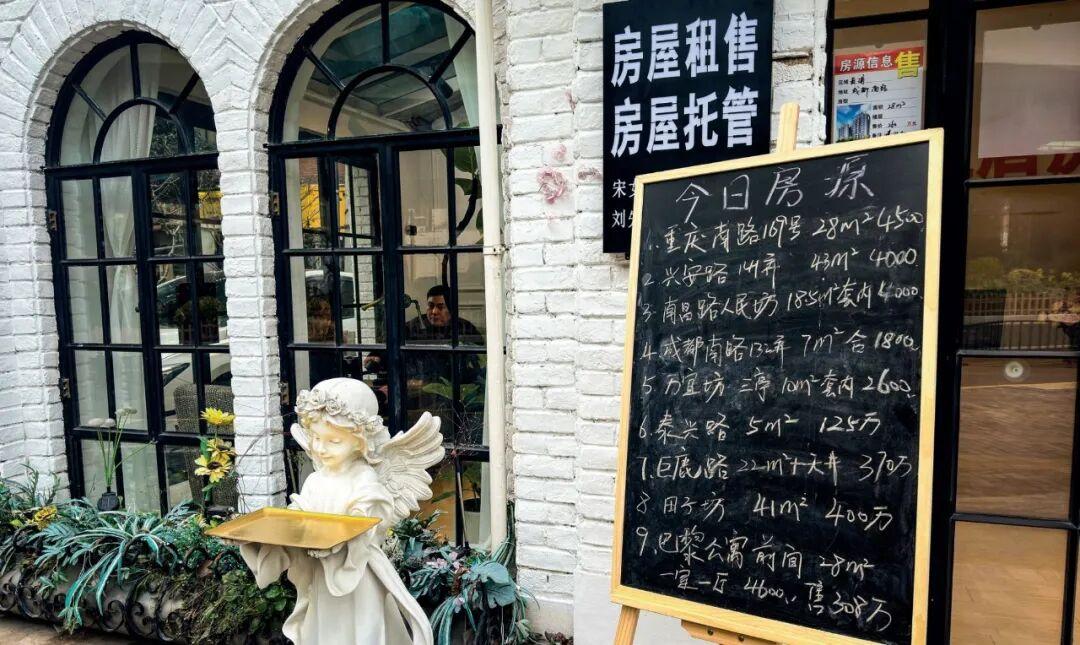 房屋租售
房屋托管
宋
刘
房源信息 售
28m²
今日房源
1. 重庆南路169号 28m² 4500
2. 兴安路141弄 43m² 4000
3. 南昌路人民坊 18.5m² 套内 4000
4. 成都南路132弄 7m² 合 1800
5. 万宜坊 三亭 10m² 套内 2600
6. 泰兴路 5m² 125万
7. 巨鹿路 22m²+天井 370万
8. 田子坊 41m² 400万
9. 巴黎公寓前间 28m²
一室一厅 4600, 售308万